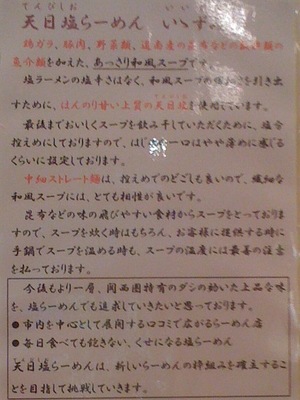 てんぴしお
天日塩らーめん
鶏ガラ、豚肉、野菜類、道南産の昆布などの
魚介類を加えた、あっさり和風スープです。
塩ラーメンの塩辛さはなく、和風スープの を引き出
すために、ほんのり甘い上質の天日塩を使用しています。
最後までおいしくスープを飲み干していただくために、塩分
控えめにしておりますので、は めに感じる
くらいに設定しております。
中細ストレート麺は、控えめでのどごしも良いので、繊細な
和風スープには、とても相性が良いです。
昆布などの味の飛びやすい食材からスープをとっております
ので、スープを炊く時はもちろん、お客様に提供する時に
手鍋でスープを温める時も、スープの温度には最善の注意
を払っております。
今後もより一層、関西圏特有のダシの効いた上品な味
を、塩らーめんでも追求していきたいと思っております。
●市内を中心として展開する口コミで広がるらーめん店
●毎日食べても飽きない、くせになる塩らーめん
天日塩らーめんは、新しいらーめんの枠組みを確立するこ
とを目指して挑戦していきます。